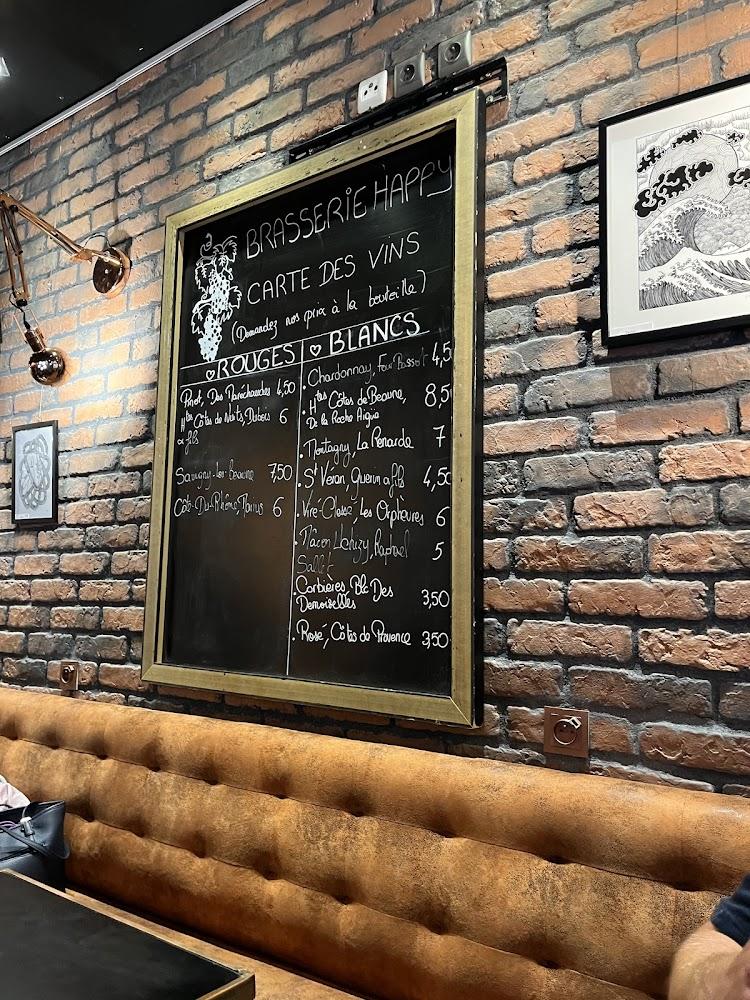 BRASSERIE HAPPY
CARTE DES VINS
(Demandez nos prix à la bouteille)
ROUGES
Pinot, Des Maréchaudes 4,50
Htes Côtes de Nuits, Dubois 6
& fils
Savigny-les-Beaune 7,50
Côte-Du-Rhône, Marius 6
BLANCS
. Chardonnay, Four Bassot 4,5
. Htes Côtes de Beaune, 8,5
De la Roche Aigüe
. Montagny, La Renarde 7
. St Véran, Guerin & fils 4,50
. Viré-Clessé, Les Orpheures 6
. Mâcon Uchizy, Raphael 5
Sallet
. Corbières, Blc Des
Demoiselles 3,50
. Rosé, Côtes de Provence 3,50